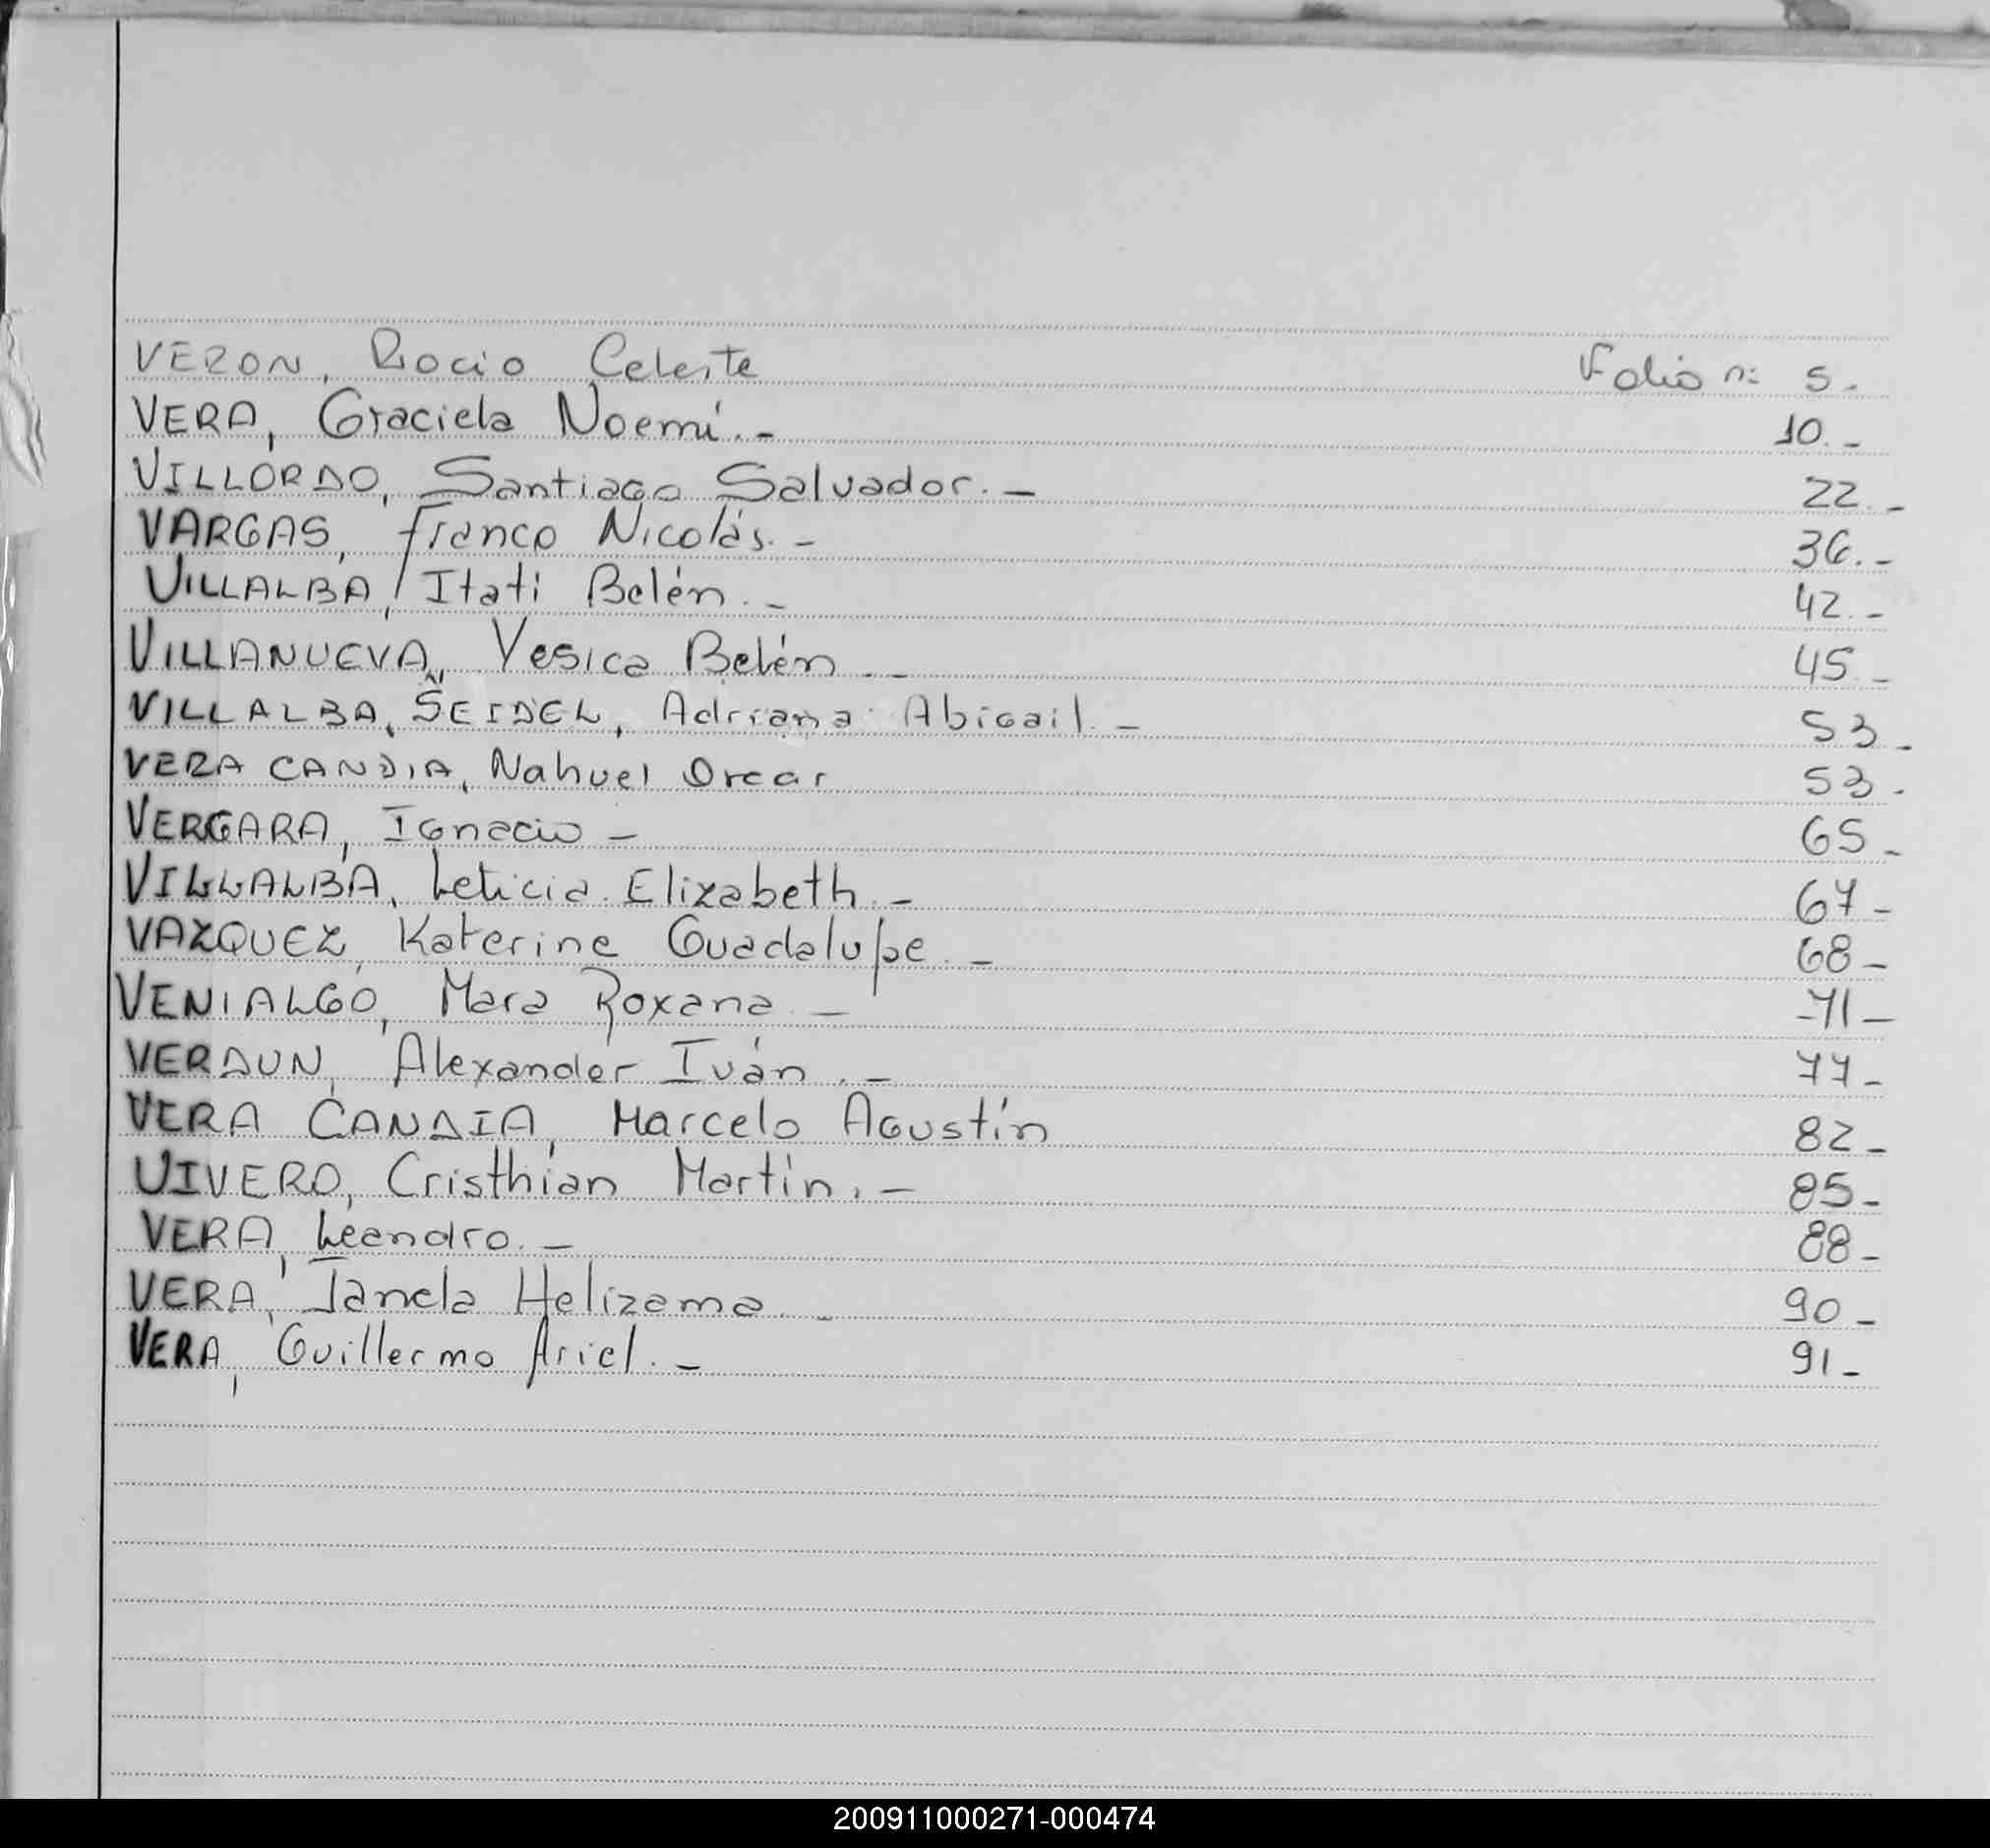 VERON, Rocio Celeste Folio nº 5.-
VERA, Graciela Noemí.- 10.-
VILLORDO, Santiago Salvador.- 22.-
VARGAS, Franco Nicolás.- 36.-
VILLALBA, Itatí Belén.- 42.-
VILLANUEVA, Yesica Belén.- 45.-
VILLALBA, SEIDEL, Adriana Abigail.- 53.-
VERA CANDIA, Nahuel Oscar 53.-
VERGARA, Ignacio- 65-
VILLALBA, Leticia Elizabeth.- 67-
VAZQUEZ, Katerine Guadalupe.- 68-
VENIALGO, Mara Roxana.- 71-
VERDUN, Alexander Iván.- 77-
VERA CANDIA, Marcelo Agustín 82-
VIVERO, Cristhian Martín.- 85-
VERA, Leandro.- 88-
VERA, Ianela Helizama.- 90-
VERA, Guillermo Ariel.- 91-
200911000271-000474